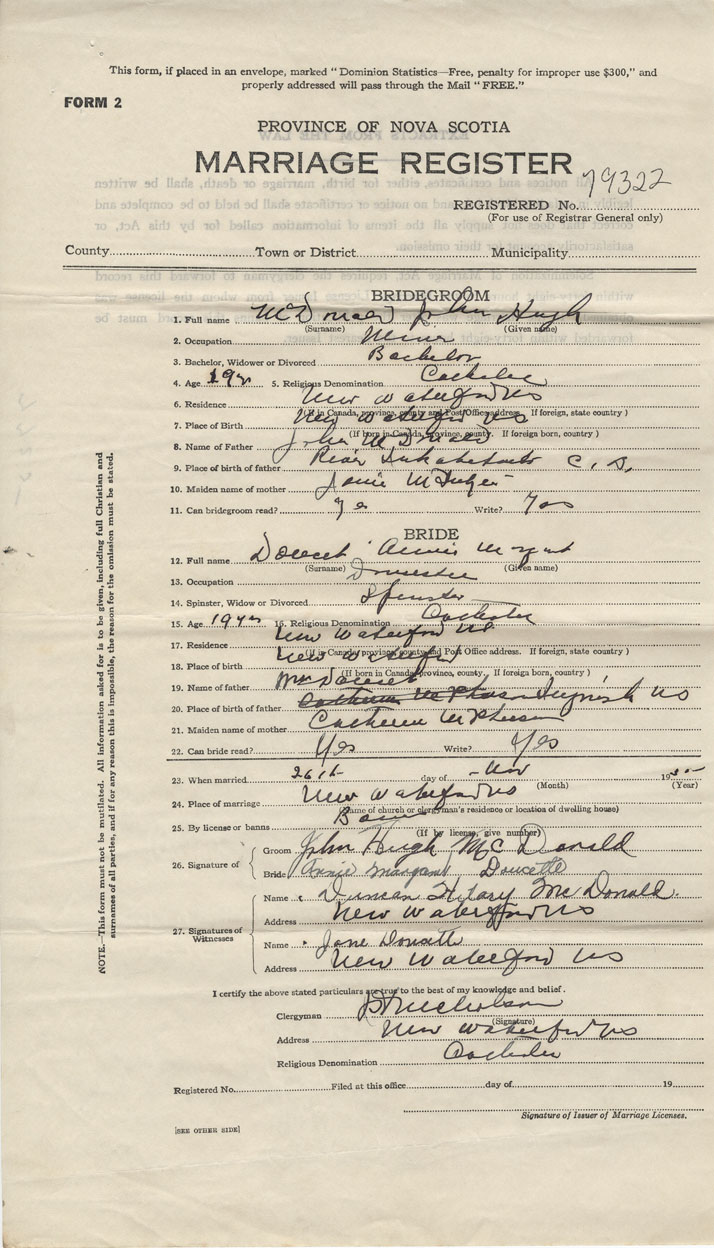 This form, if placed in an envelope, marked "Dominion Statistics—Free, penalty for improper use $300," and
properly addressed will pass through the Mail "FREE."
FORM 2
PROVINCE OF NOVA SCOTIA
MARRIAGE REGISTER
79322
REGISTERED No.
(For use of Registrar General only)
County Town or District Municipality
BRIDEGROOM
1. Full name McDonald John Hugh
(Surname) (Given name)
2. Occupation Miner
3. Bachelor, Widower or Divorced Bachelor
4. Age 19 yrs 5. Religious Denomination Catholic
6. Residence New Waterford NS
(If in Canada, province, county and Post Office address. If foreign, state country)
7. Place of Birth New Waterford NS
(If born in Canada, province, county. If foreign born, country)
8. Name of Father John McDonald
9. Place of birth of father River C. B.
10. Maiden name of mother
11. Can bridegroom read? yes Write? Yes
BRIDE
12. Full name Doucet Annie Margaret
(Surname) (Given name)
13. Occupation Domestic
14. Spinster, Widow or Divorced Spinster
15. Age 19 yrs 16. Religious Denomination Catholic
17. Residence New Waterford NS
(If in Canada, province, county and Post Office address. If foreign, state country)
18. Place of birth New Waterford
(If born in Canada, province, county. If foreign born, country)
19. Name of father Doucet
20. Place of birth of father NS
21. Maiden name of mother Catherine McPherson
22. Can bride read? Yes Write? Yes
23. When married 26th day of Nov 19
(Month) (Year)
24. Place of marriage New Waterford NS
(Name of church or clergyman's residence or location of dwelling house)
25. By license or banns Banns
(If by license, give number)
26. Signature of Groom John Hugh McDonald
Bride Annie Margaret Doucette
27. Signatures of Witnesses
Name Duncan Hilary McDonald.
Address New Waterford NS
Name Jane
Address New Waterford NS
I certify the above stated particulars are true to the best of my knowledge and belief.
Clergyman Nicholson
(Signature)
Address New Waterford NS
Religious Denomination Catholic
Registered No. Filed at this office day of 19
Signature of Issuer of Marriage Licenses.
[SEE OTHER SIDE]
NOTE.—This form must not be mutilated. All information asked for is to be given, including full Christian and
surnames of all parties, and if for any reason this is impossible, the reason for the omission must be stated.